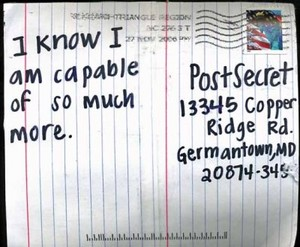 RESEARCH TRIANGLE REGION
27 NOV 2006 PM
I KNOW I
am capable
of so much
more.
PostSecret
13345 Copper
Ridge Rd.
Germantown, MD
20874-345